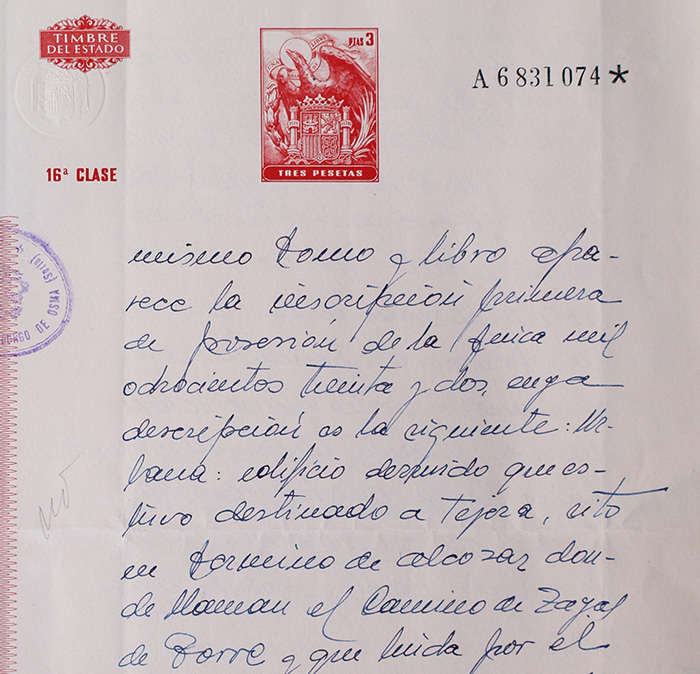 TIMBRE
DEL ESTADO
PTAS 3
A6831074*
16ª CLASE
TRES PESETAS
mismo tomo y libro apa-
rece la inscripción primera
de posesión de la finca mil
ochocientos treinta y dos, cuya
descripción es la siguiente: Ur-
bana: edificio derruido que es-
tuvo destinado a Tejera, sito
en término de Alcozar don-
de llaman el Camino de Zayas
de Torre y que linda por el
(Soria)
BURGO DE OSMA